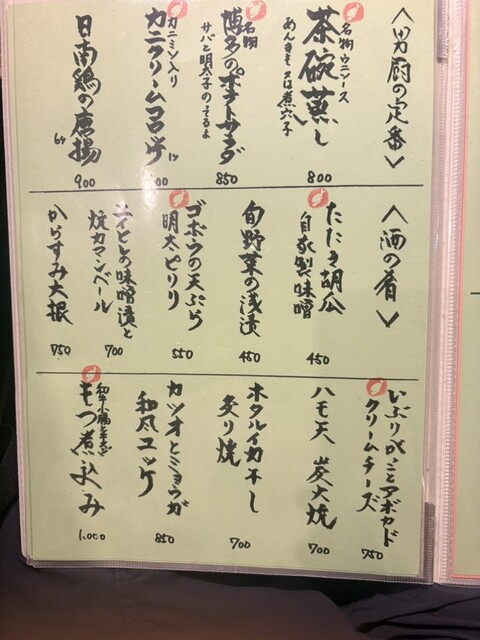 〈男厨の定番〉
名物 ウニソース
茶碗蒸し
あんきも又は煮穴子
800
名物
博多のポテトサラダ
サバと明太子のってるよ
850
カニミソ入り
カニクリームコロッケ 1ヶ
日南鶏の唐揚 6ヶ
900
〈酒の肴〉
たたき胡瓜
自家製味噌
450
旬野菜の浅漬
450
ゴボウの天ぷら
明太ピリリ
550
エイヒレの味噌漬と
焼カマンベール
700
からすみ大根
750
いぶりがっことアボカド
クリームチーズ
750
ハモ天 炭火焼
700
ホタルイカ干し
炙り焼
700
カツオとミョウガ
和風ユッケ
850
和牛小腸と牛すじ
もつ煮込み
1,000